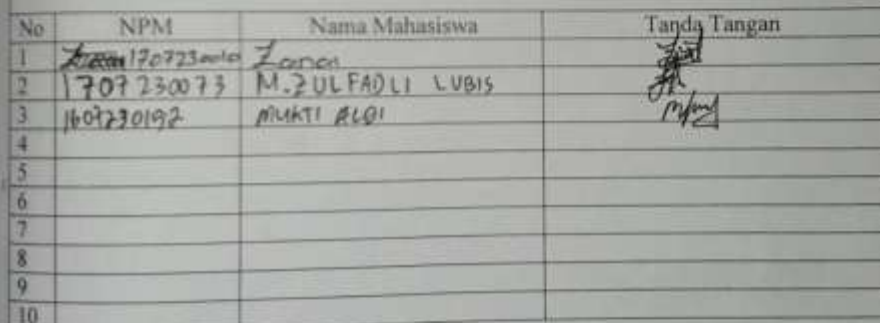 No NPM Nama Mahasiswa Tanda Tangan
1 1707230010 Zanen
2 1707230073 M. ZULFADLI LUBIS
3 1607230192 MUKTI ALDI
4
5
6
7
8
9
10